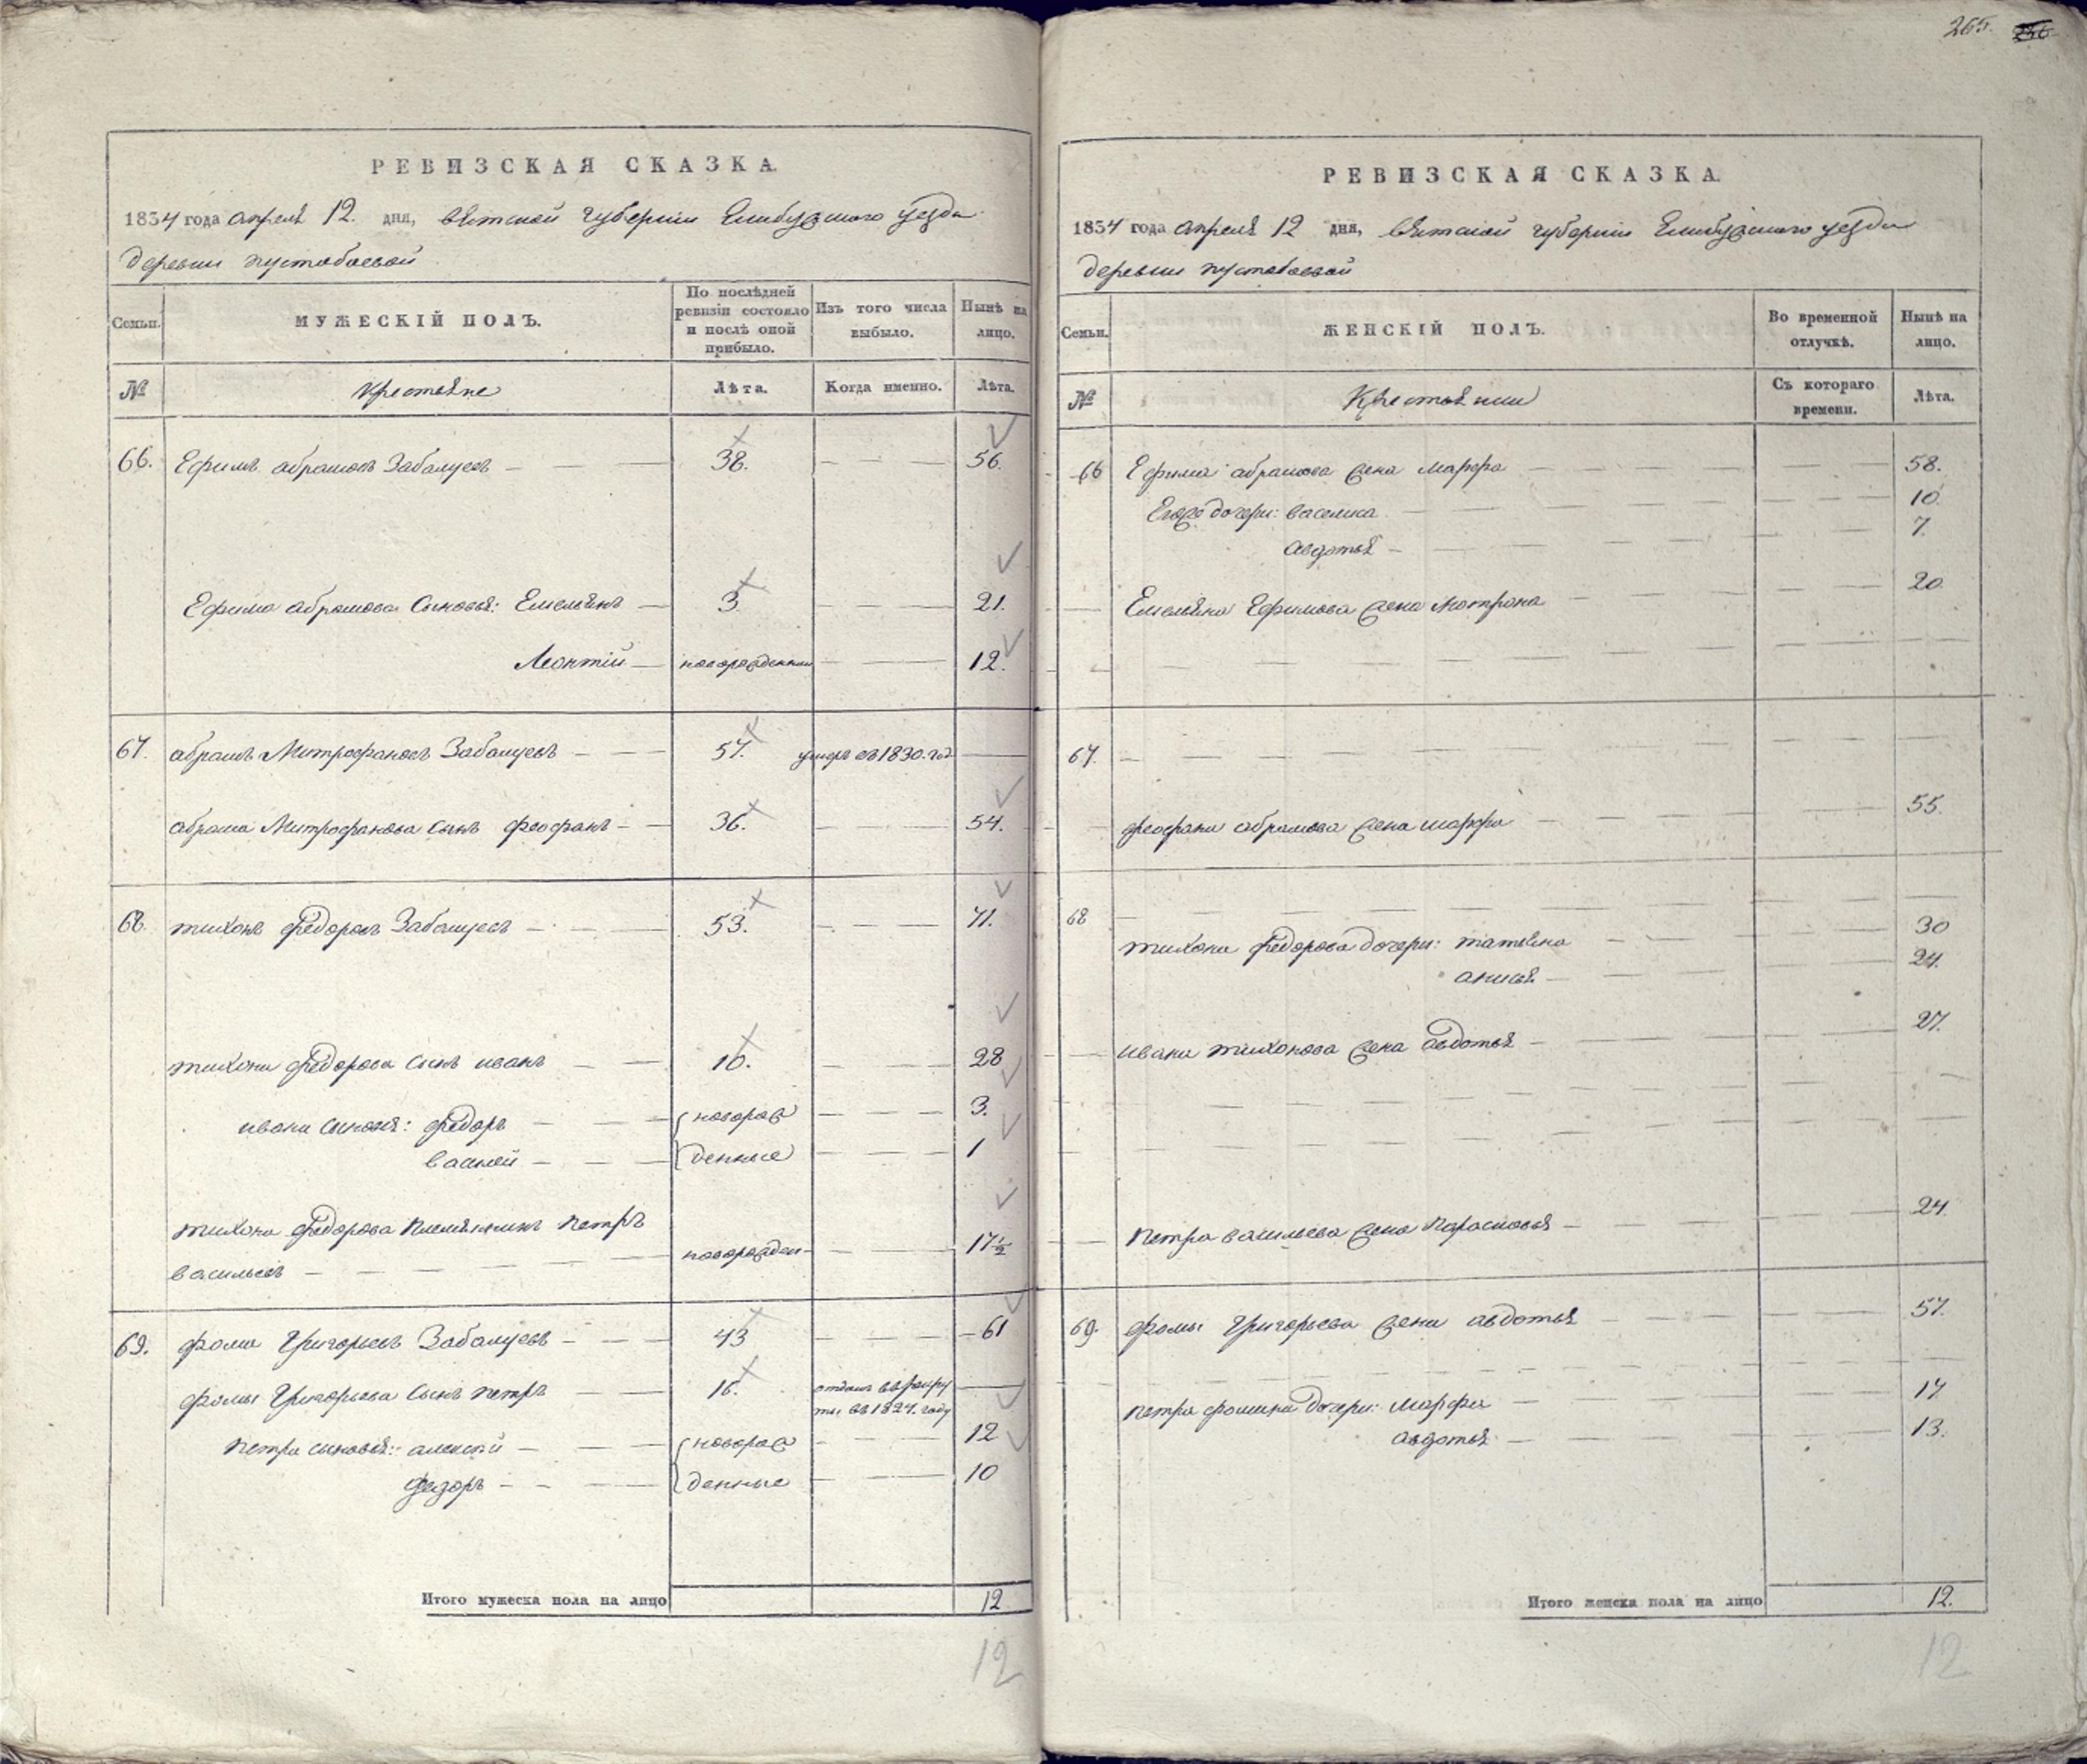 265.
РЕВИЗСКАЯ СКАЗКА.
1834 года апреля 12. дня, вятской губернии Елабужского уезда
деревни пустобаевой
Семьи.
МУЖЕСКІЙ ПОЛЪ.
По послѣдней ревизіи состояло и послѣ оной прибыло.
Изъ того числа выбыло.
Нынѣ на лицо.
№
Крестьяне
Лѣта.
Когда именно.
Лѣта.
66. Ефимъ абрамовъ Забалуевъ 38. 56.
Ефима абрамова сыновья: Емельянъ 3. 21.
Леонтій новорожденный 12.
67. абрамъ Митрофановъ Забалуевъ 57. умеръ въ 1830. год
абрама Митрофанова сынъ феофанъ 36. 54.
68. тихонъ федоровъ Забалуевъ 53. 71.
тихона федорова сынъ иванъ 10. 28
ивана сыновя: федоръ новорож 3.
василей денные 1
тихона федорова племянникъ петръ
васильевъ новорожден 17½
69. фома григорьевъ Забалуевъ 43 61
фомы григорьева сынъ петръ 16. отданъ въ рекру
ты въ 1824. году
петра сыновья: алексей новорож 12
федоръ денные 10
Итого мужеска пола на лицо 12.
12
РЕВИЗСКАЯ СКАЗКА.
1834 года апреля 12 дня, вятской губерніи Елабужского уезда
деревни пустобаевой
Семьи.
ЖЕНСКІЙ ПОЛЪ.
Во временной отлучкѣ.
Нынѣ на лицо.
№
Крестьянки
Съ котораго времени.
Лѣта.
66 Ефима абрамова жена марфа 58.
Егоже дочери: василиса 10.
авдотья 7.
Емельяна Ефимова жена мотрона 20
67.
феофана абрамова жена марфа 55.
68
тихона федорова дочери: татьяна 30
анисья 24.
ивана тихонова жена авдотья 27.
петра васильева жена парасковья 24
69. фомы григорьева жена авдотья 57.
петра фомина дочери: марфа 17
авдотья 13.
Итого женска пола на лицо 12.
12